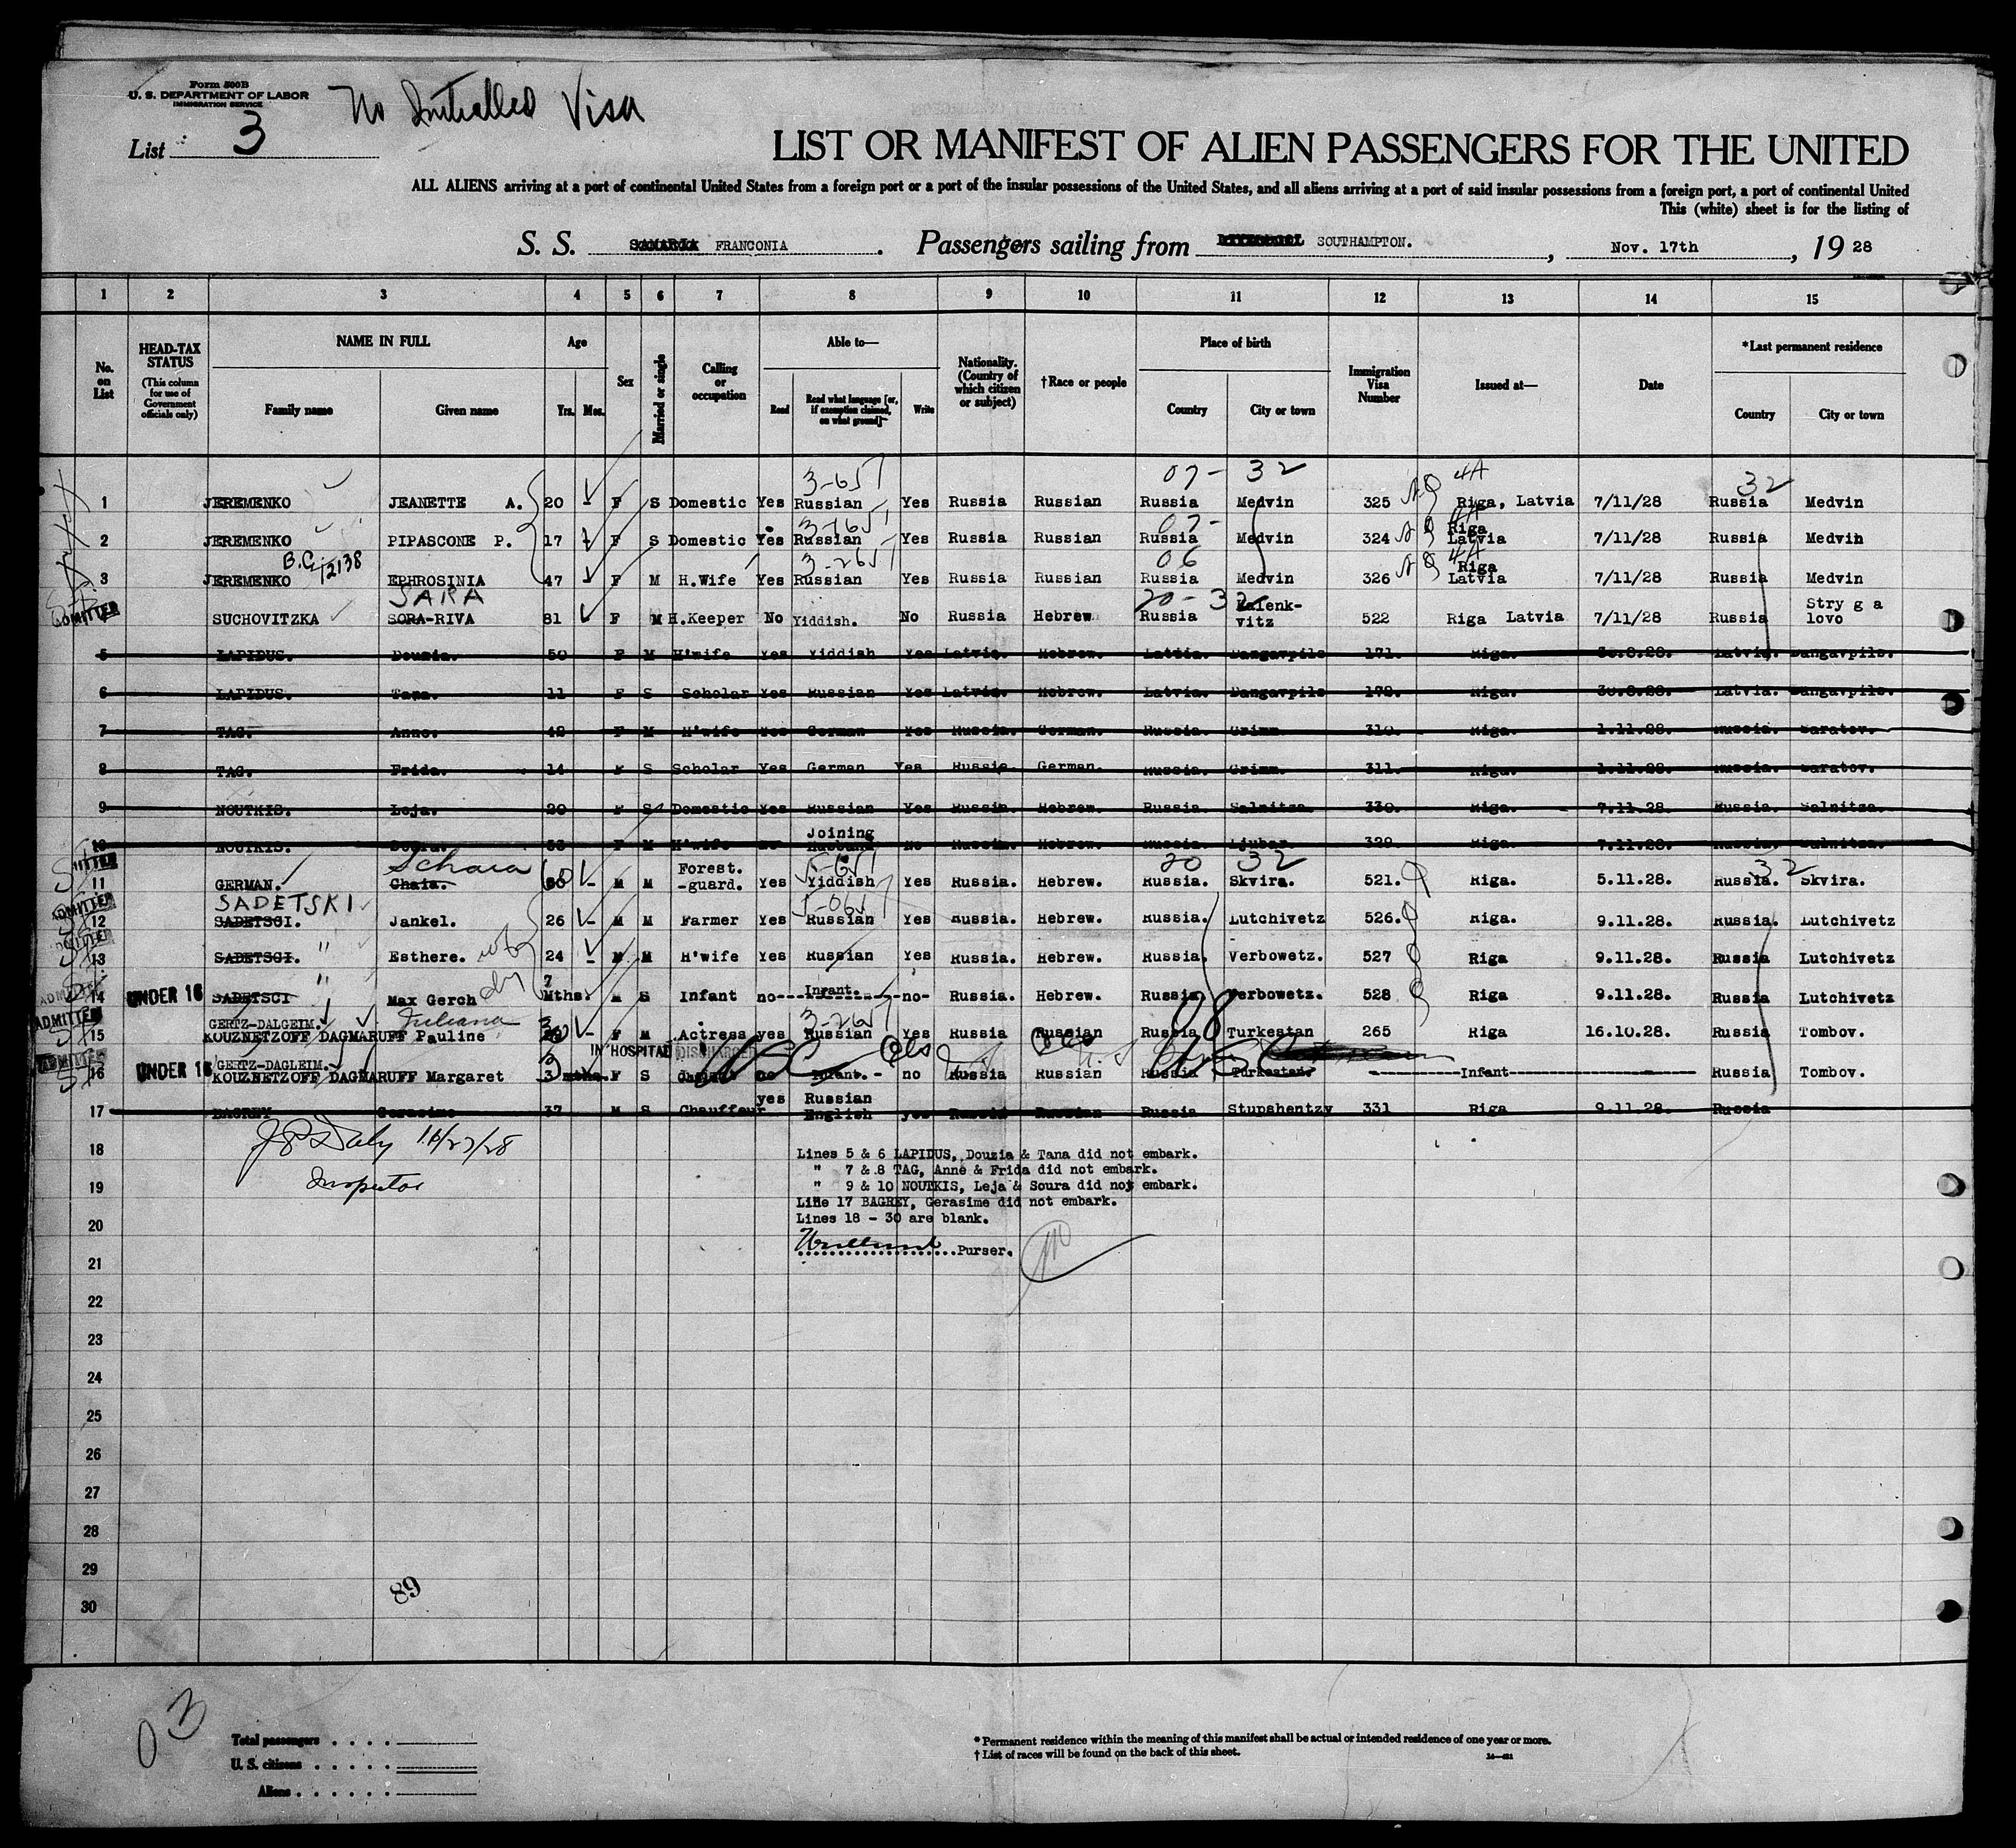 Form 500B
U. S. DEPARTMENT OF LABOR
IMMIGRATION SERVICE
No Initialled Visa
List 3
LIST OR MANIFEST OF ALIEN PASSENGERS FOR THE UNITED
ALL ALIENS arriving at a port of continental United States from a foreign port or a port of the insular possessions of the United States, and all aliens arriving at a port of said insular possessions from a foreign port, a port of continental United
This (white) sheet is for the listing of
S. S. SAMARIA FRANCONIA. Passengers sailing from LIVERPOOL SOUTHAMPTON. , Nov. 17th , 19 28
1 2 3 4 5 6 7 8 9 10 11 12 13 14 15
No. on List HEAD-TAX STATUS (This column for use of Government officials only) NAME IN FULL Family name Given name Age Yrs. Mos. Sex Married or single Calling or occupation Able to— Read Read what language [or, if exemption claimed, on what ground] Write Nationality. (Country of which citizen or subject) †Race or people Place of birth Country City or town Immigration Visa Number Issued at— Date *Last permanent residence Country City or town
3-651 07- 32 4A 32
1 JEREMENKO JEANETTE A. 20 - F S Domestic Yes Russian Yes Russia Russian Russia Medvin 325 Riga, Latvia 7/11/28 Russia Medvin
3-1651 07- 4A
2 JEREMENKO PIPASCONE P. 17 F S Domestic Yes Russian Yes Russia Russian Russia Medvin 324 Riga Latvia 7/11/28 Russia Medvin
B.C. 12138 3-2651 06 4A
3 JEREMENKO EPHROSINIA 47 F M H.Wife Yes Russian Yes Russia Russian Russia Medvin 326 Riga Latvia 7/11/28 Russia Medvin
SARA 20-32
SUCHOVITZKA SORA-RIVA 81 F M H.Keeper No Yiddish. No Russia Hebrew Russia Malenk-vitz 522 Riga Latvia 7/11/28 Russia Stry g a lovo
5 LAPIDUS. Douzia. 50 F M H'wife Yes Yiddish Yes Latvia. Hebrew. Latvia. Dangavpils 171. Riga. 30.8.28. Latvia. Dangavpils.
6 LAPIDUS. Tana. 11 F S Scholar Yes Russian Yes Latvia. Hebrew. Latvia. Dangavpils 172. Riga. 30.8.28. Latvia. Dangavpils.
7 TAG. Anne. 42 F M H'wife Yes German Yes Russia. German. Russia. Grimm 310. Riga. 1.11.28. Russia. Saratov.
8 TAG. Frida. 14 F S Scholar Yes German Yes Russia. German. Russia. Grimm. 311. Riga. 1.11.28. Russia. Saratov.
9 NOUTKIS. Leja. 20 F S Domestic Yes Russian Yes Russia. Hebrew. Russia. Salnitza. 330. Riga. 7.11.28 Russia. Salnitza.
10 NOUTKIS. Soura. 53 F M H'wife no Joining Husband No Russia. Hebrew. Russia. Ljubar. 329 Riga. 7.11.28. Russia. Salnitza.
Schaia 5-651 20 32 32
11 GERMAN. Chaia. 60 - M M Forest.-guard. Yes Yiddish Yes Russia. Hebrew. Russia. Skvira. 521. Riga. 5.11.28. Russia. Skvira.
SADETSKI 5-0651
ADMITTED
12 SADETSCI. Jankel. 26 - M M Farmer Yes Russian Yes Russia. Hebrew. Russia. Lutchivetz 526. Riga. 9.11.28. Russia. Lutchivetz
"
13 SADETSCI. Esthere. 24 - M M H'wife Yes Russian Yes Russia. Hebrew. Russia. Verbowetz. 527 Riga 9.11.28. Russia Lutchivetz
"
ADMITTED
14 UNDER 16 SADETSCI Max Gerch 7 Mths. M S Infant no- Infant. -no- Russia. Hebrew. Russia Verbowetz. 528 Riga 9.11.28. Russia Lutchivetz
GERTZ-DALGEIM. Juliana 3-2657
ADMITTED
15 KOUZNETZOFF DAGMARUFF Pauline 30 - F M Actress yes Russian Yes Russia Russian Russia Turkestan 265 Riga 16.10.28. Russia Tombov.
IN HOSPITAL DISCHARGED
ADMITTED
16 UNDER 16 GERTZ-DAGLEIM. KOUZNETZOFF DAGMARUFF Margaret 3 mths. F S no Infant. - no Russia Russian Russia Turkestan. Infant Russia Tombov.
17 BAGREY Gerasime 37 M S Chauffeur yes Russian English yes Russia Russian Russia Stupshentzy 331 Riga 9.11.28. Russia
J P Daly 11/27/28
Inspector
18
Lines 5 & 6 LAPIDUS, Douzia & Tana did not embark.
" 7 & 8 TAG, Anne & Frida did not embark.
19
" 9 & 10 NOUTKIS, Leja & Soura did not embark.
Line 17 BAGREY, Gerasime did not embark.
20
Lines 18 - 30 are blank.
Purser.
21
22
23
24
25
26
27
28
29
30
89
03
Total passengers
U. S. citizens
Aliens
* Permanent residence within the meaning of this manifest shall be actual or intended residence of one year or more.
† List of races will be found on the back of this sheet.
14—421